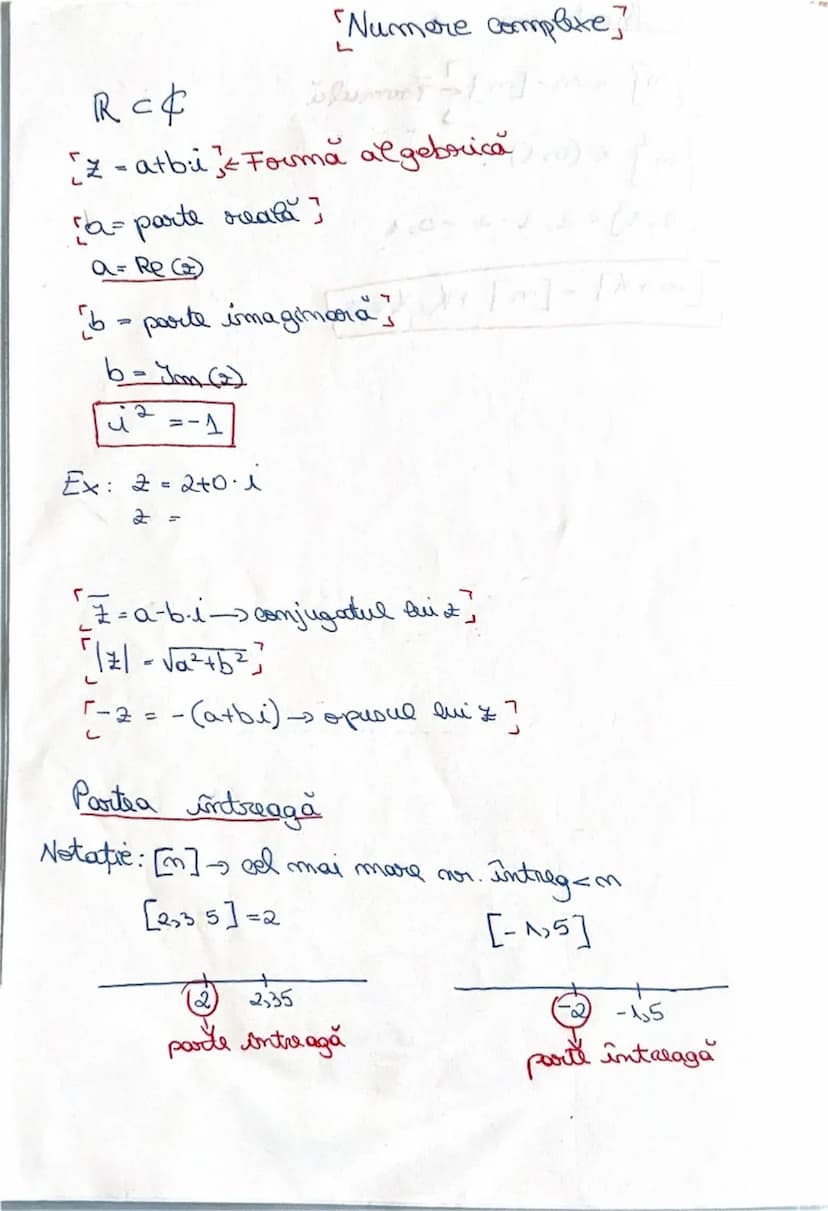 Numere complexe
ℝ ⊂ ℂ
z = a+b·i ← Formă algebrică
a = parte reală
a = Re(z)
b = parte imaginară
b = Im(z)
i² = -1
Ex: z = 2+0·i
z =
z̅ = a-b·i → conjugatul lui z
|z| = √a²+b²
-z = -(a+bi) → opusul lui z
Partea întreagă
Notație: [n] → cel mai mare nr. întreg < n
[2,35] = 2 [-1,5]
2 2,35 -2 -1,5
parte întreagă parte întreagă